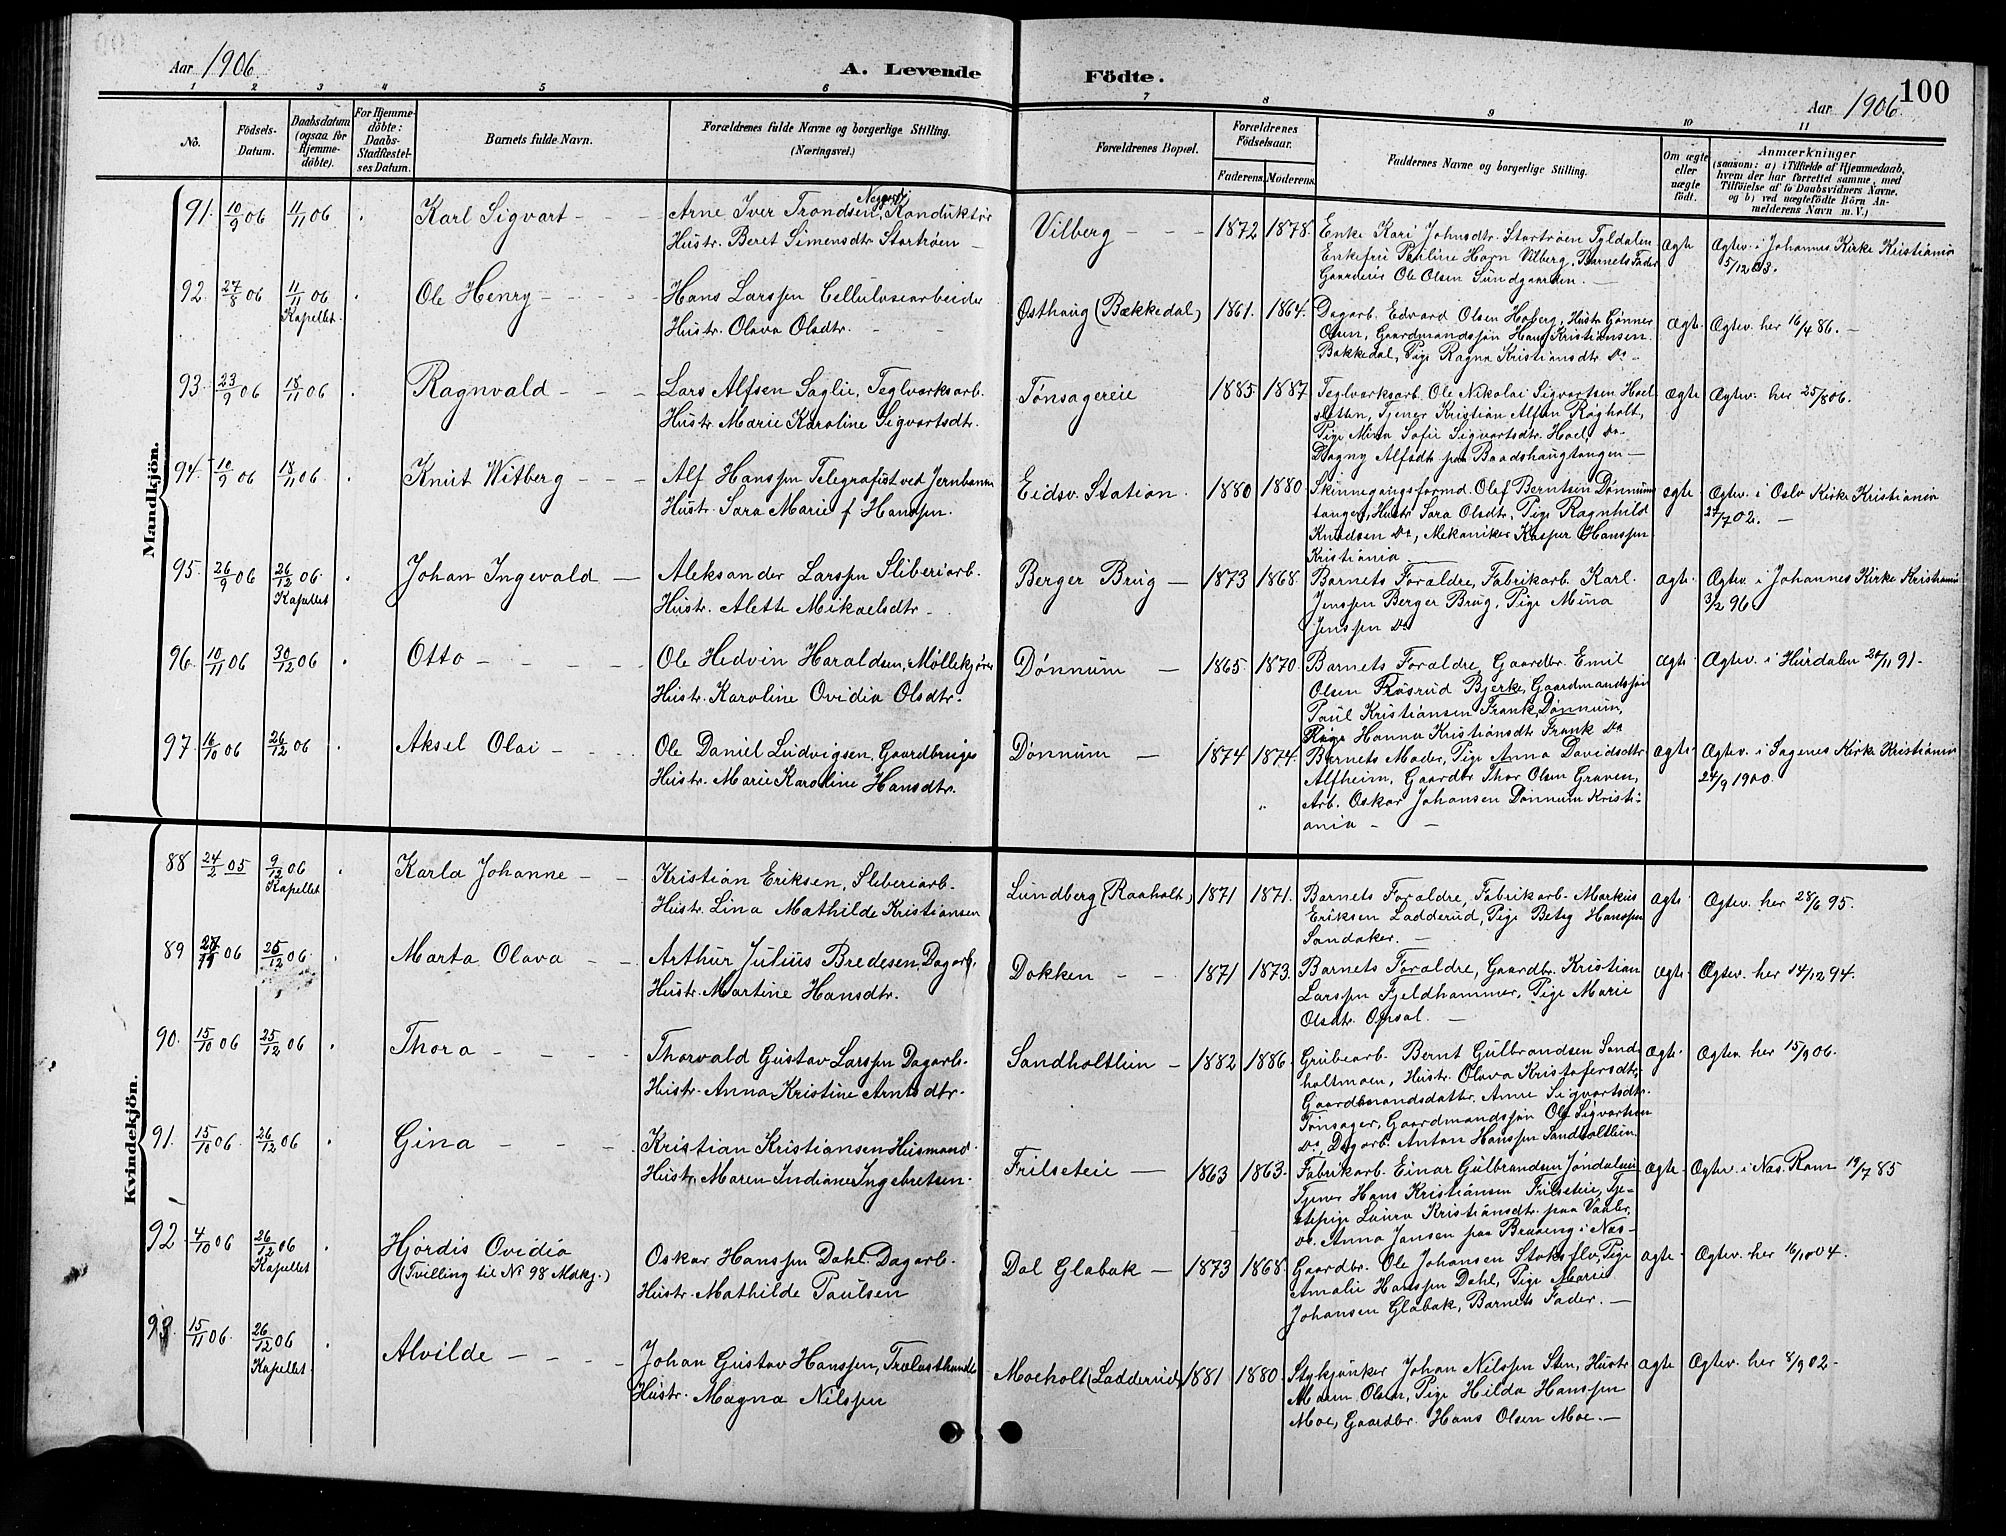 100
Aar 1906.
A. Levende Födte.
Aar 1906.
1 2 3 4 5 6 7 8 9 10 11
No.
Födsels-Datum.
Daabsdatum (ogsaa for Hjemme-döbte).
For Hjemme-döbte: Daabs-Stadfæstel-ses Datum.
Barnets fulde Navn.
Forældrenes fulde Navne og borgerlige Stilling.
(Næringsvei.)
Forældrenes Bopæl.
Forældrenes Födselsaar.
Faderens. Moderens.
Faddernes Navne og borgerlige Stilling.
Om ægte eller uægte födt.
Anmærkninger
(saasom: a) i Tilfælde af Hjemmedaab, hvem der har forrettet samme, med Tilföielse af to Daabsvidners Navne, og b) ved uægtefödte Börn An-melderens Navn m.V.)
Mandkjön.
91. 10/9 06 11/11 06 Karl Sigvart
Arne Iver Trondsen, Konduktør
Hustr. Beret Simensdtr Stortrøen
Vilberg 1872 1878.
Enke Kari Johnsdtr. Stortrøen Tyldalen
Enkefru Pauline Horn Vilberg, Barnets Fader
Gaardeier Ole Olsen Sundgaarden.
Ægte Ægtev. i Johannes Kirke Kristiania
5/12 03.
92. 27/8 06 11/11 06 Kapellet. Ole Henry
Hans Larssen Cellulosearbeider
Hustr. Olava Olsdtr.
Østhaug (Bækkedal) 1861. 1864.
Dagarb. Edvard Olsen Hoberg, Hustr Gönner
Olsen, Gaardmandssøn Hans Kristiansen
Bækkedal, Pige Ragna Kristiansdtr Do
Ægte. Ægtev. her 16/4 86.
93. 23/9 06 18/11 06 Ragnvald
Lars Alfsen Saglie, Teglverksarb.
Hustr. Marie Karoline Sigvartsdtr.
Tønsagereie 1885. 1887
Teglverksarb. Ole Nikolai Sigvartsen Hoel
sletten, Tjener Kristian Alfsen Rågholt,
Pige Mina Sofie Sigvartsdtr. Hoel, Do
Dagny Alfsdt paa Baadshaugtangen
Ægte Ægtev. her 25/8 06.
94. 10/9 06 18/11 06 Knut Witberg
Alf Hanssen Telegrafist ved Jernbanen
Hustr. Sara Marie f Hanssen.
Eidsv. Station. 1880 1880
Skinnegangsformd. Olaf Berntsen Dønnum
tangen, Hustr Sara Olsdtr, Pige Ragnhild
Knudsen Do, Mekaniker Kasper Hanssen
Kristiania
ægte Ægtev. i Oslo Kirke Kristiania
27/7 02.
95. 26/9 06 26/12 06. Kapellet Johan Ingevald
Aleksander Larssen Sliberiarb.
Hustr. Alette Mikaelsdtr.
Berger Brug 1873 1868
Barnets Forældre, Fabrikarb. Karl
Jenssen Berger Brug, Pige Mina
Jenssen Do
ægte. Ægtev. i Johannes Kirke Kristiania
3/2 96
96. 10/11 06 30/12 06 Otto
Ole Hedvin Haraldsen, Møllekjører
Hustr. Karoline Ovidia Olsdtr.
Dønnum 1865. 1870.
Barnets Forældre, Gaardbr. Emil
Olsen Røsrud Bjerke, Gaardmandssøn
Paul Kristiansen Frank Dønnum,
Pige Hanna Kristiansdt Frank Do
Ægte. Ægtev. i Hurdalen 91.
97. 16/10 06 26/12 06 Aksel Olai
Ole Daniel Ludvigsen, Gaardbruger
Hustr. Marie Karoline Hansdtr.
Dønnum 1874 1874.
Barnets Moder, Pige Anna Davidsdtr
Alfheim, Gaardbr Thor Olsen Graven,
Arb. Oskar Johansen Dønnum Kristi-
ania
ægte. Ægtev. i Sagenes Kirke Kristiania
24/9 1900.
Kvindekjön.
88 24/2 05 9/12 06 Kapellet Karla Johanne
Kristian Eriksen, Sliberiarb.
Hustr. Lina Mathilde Kristiansen
Lundberg (Raaholt) 1871 1871.
Barnets Forældre, Fabrikarb. Markus
Eriksen Ladderud, Pige Betsy Hanssen
Sandaker.
Ægte Ægtev. her 28/6 95.
89 06 25/12 06. Marta Olava
Arthur Julius Bredesen, Dagarb.
Hustr. Martine Hansdtr.
Dokken 1871 1873.
Barnets Forældre, Gaardbr. Kristian
Larssen Fjeldhammer, Pige Marie
Olsdtr. Opsal.
Ægte Ægtev. her 14/12 94.
90. 15/10 06 25/12 06 Thora
Thorvald Gustav Larssen Dagarb.
Hustr. Anna Kristine Arntsdtr.
Sandholtlien 1882 1886
Grubearb. Bernt Gulbrandsen Sand-
holtmoen, Hustr. Olava Kristofersdtr,
Gaardmandsdatter, Anne Sigvartsdtr.
Tønsager, Gaardmandssøn Ole Sigvartsen
Do, Dagarb. Anton Hanssen Sandholtlien.
Ægte. Ægtev. her 15/9 06.
91. 15/10 06. 26/12 06 Gina
Kristian Kristiansen Husmand
Hustr. Maren Indiane Ingebretsen.
Frilseteie 1863 1863.
Fabrikarb. Einar Gulbrandsen Jøndalseie
Tjener Hans Kristiansen Frilseteie, Tje-
stepige Laura Kristiansdtr. paa Vaaler,
Do. Anna Jansen paa Braaeng i Næs
Ægte Ægtev. i Næs Rom. 19/7 85
92. 4/10 06 26/12 06 Kapellet Hjördis Ovidia
(Tvilling til N 98 Mdkj.)
Oskar Hanssen Dahl Dagarb.
Hustr. Mathilde Paulsen
Dal Glabak 1873 1868
Gaardbr. Ole Johansen Stoksflo, Pige
Amalie Hanssen Dahl, Pige Marie
Johansen Glabak, Barnets Fader.
ægte Ægtev. her 16/10 04.
93. 15/11 06. 26/12 06 Kapellet. Alvilde
Johan Gustav Hanssen, Trælasthandler
Hustr. Magna Nilssen
Moeholt (Ladderud) 1881 1880
Stykjunker Johan Nilssen Sten, Hustr
Maren Olsen, Pige Hilda Hanssen
Moe, Gaardbr. Hans Olsen Moe.
ægte Ægtev. her 8/9 02.